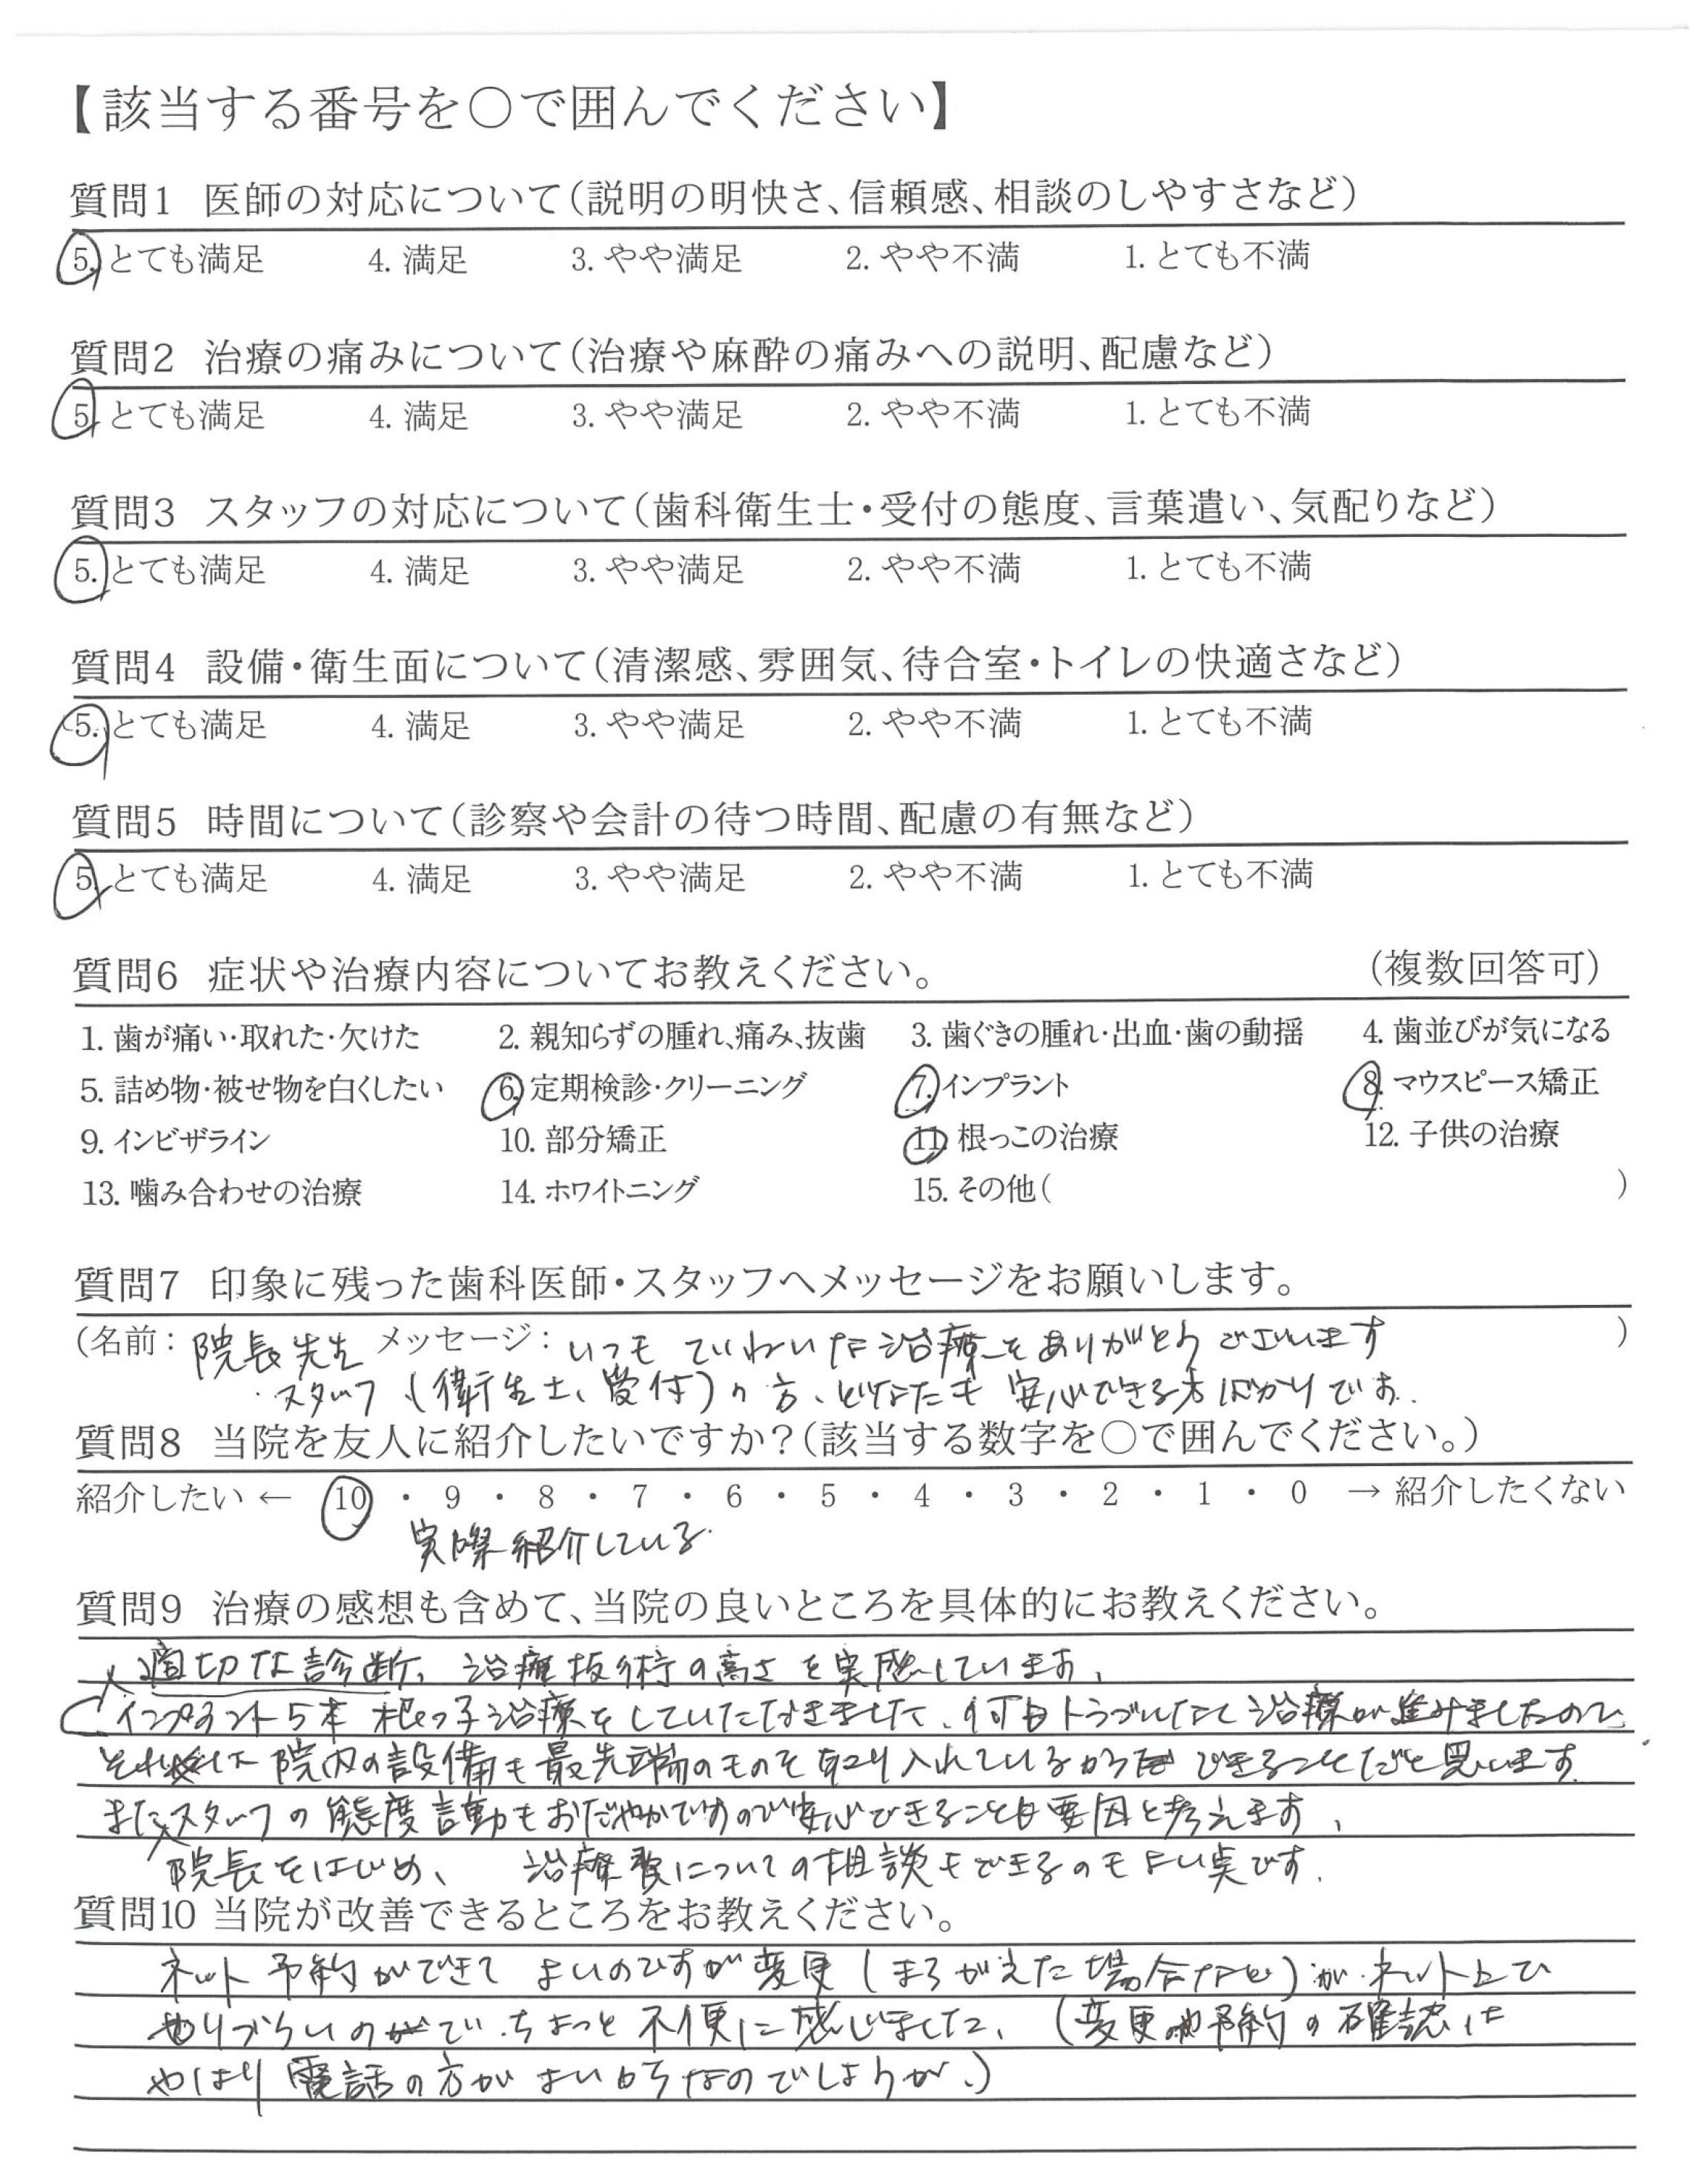 【該当する番号を○で囲んでください】
質問1 医師の対応について(説明の明快さ、信頼感、相談のしやすさなど)
5. とても満足 4. 満足 3. やや満足 2. やや不満 1. とても不満
質問2 治療の痛みについて(治療や麻酔の痛みへの説明、配慮など)
5. とても満足 4. 満足 3. やや満足 2. やや不満 1. とても不満
質問3 スタッフの対応について(歯科衛生士・受付の態度、言葉遣い、気配りなど)
5. とても満足 4. 満足 3. やや満足 2. やや不満 1. とても不満
質問4 設備・衛生面について(清潔感、雰囲気、待合室・トイレの快適さなど)
5. とても満足 4. 満足 3. やや満足 2. やや不満 1. とても不満
質問5 時間について(診察や会計の待つ時間、配慮の有無など)
5. とても満足 4. 満足 3. やや満足 2. やや不満 1. とても不満
質問6 症状や治療内容についてお教えください。 (複数回答可)
1. 歯が痛い・取れた・欠けた 2. 親知らずの腫れ、痛み、抜歯 3. 歯ぐきの腫れ・出血・歯の動揺 4. 歯並びが気になる
5. 詰め物・被せ物を白くしたい 6. 定期検診・クリーニング 7. インプラント 8. マウスピース矯正
9. インビザライン 10. 部分矯正 11. 根っこの治療 12. 子供の治療
13. 噛み合わせの治療 14. ホワイトニング 15. その他( )
質問7 印象に残った歯科医師・スタッフへメッセージをお願いします。
(名前: 院長先生 メッセージ: いつも ていねいな治療をありがとうございます )
スタッフ(衛生士、受付)の方、どなたも 安心できる方ばかりです.
質問8 当院を友人に紹介したいですか?(該当する数字を○で囲んでください。)
紹介したい ← 10 ・ 9 ・ 8 ・ 7 ・ 6 ・ 5 ・ 4 ・ 3 ・ 2 ・ 1 ・ 0 → 紹介したくない
実際紹介している.
質問9 治療の感想も含めて、当院の良いところを具体的にお教えください。
適切な診断、治療技術の高さを実感しています、
インプラント5本 根っ子治療をしていただきました、何もトラブルなく治療が進みましたので
それは 院内の設備も最先端のものを取り入れているから できることだと思います
またスタッフの態度言動もおだやかですので安心できることも要因と考えます、
院長をはじめ、 治療費についての相談もできるのもよい点です.
質問10 当院が改善できるところをお教えください。
ネット予約ができて よいのですが変更(まちがえた場合など)が ネット上で
やりづらいので ちょっと不便に感じました、(変更や予約の確認は
やはり電話の方がよいからなのでしょうが、)